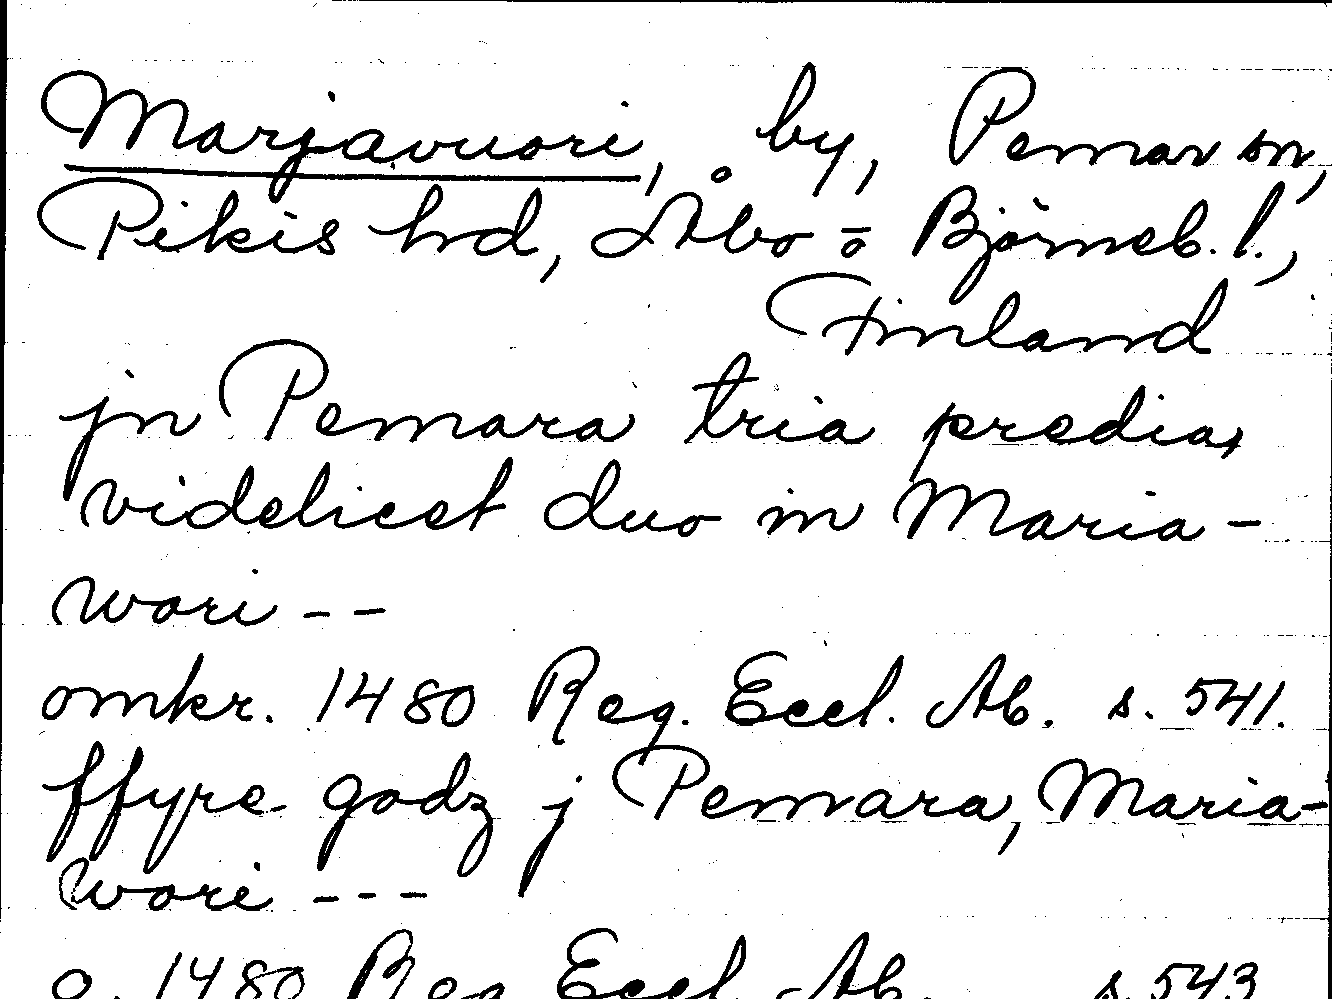 Marjavuori, by, Pemar sn,
Pikis hd, Åbo o Björneb. l.,
Finland
jn Pemara tria predia,
videlicet duo in Maria-
wori --
omkr. 1480 Reg. Eccl. Ab. s. 541.
ffyre godz j Pemara, Maria-
wori ---
o. 1480 Reg Eccl Ab. s. 543